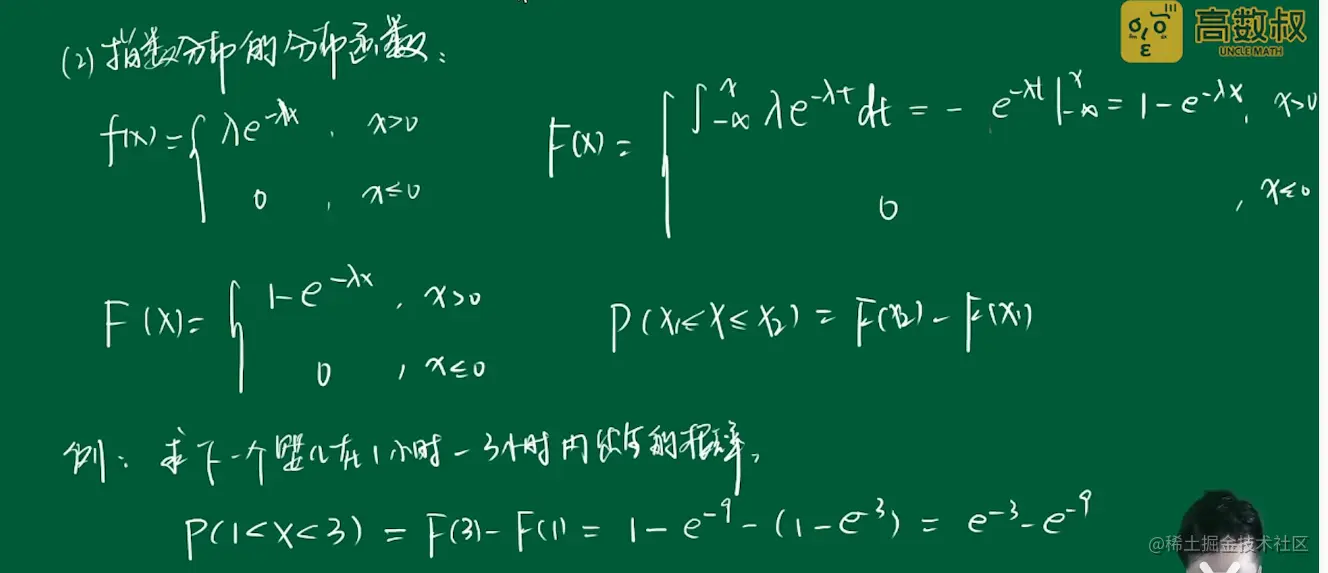 高数叔
UNCLE MATH
(2) 指数分布的分布函数:
f(x) = { λe^{-λx}, x>0
0, x≤0
F(x) = { ∫_{-∞}^{x} λe^{-λt}dt = - e^{-λt}|_{-∞}^{x} = 1-e^{-λx}, x>0
0, x≤0
F(x) = { 1-e^{-λx}, x>0
0, x≤0
P(x₁≤X≤x₂) = F(x₂) - F(x₁)
例: 求下一个婴儿在1小时-3小时内出生的概率。
P(1<X<3) = F(3) - F(1) = 1 - e^{-9} - (1-e^{-3}) = e^{-3} - e^{-9}
@稀土掘金技术社区